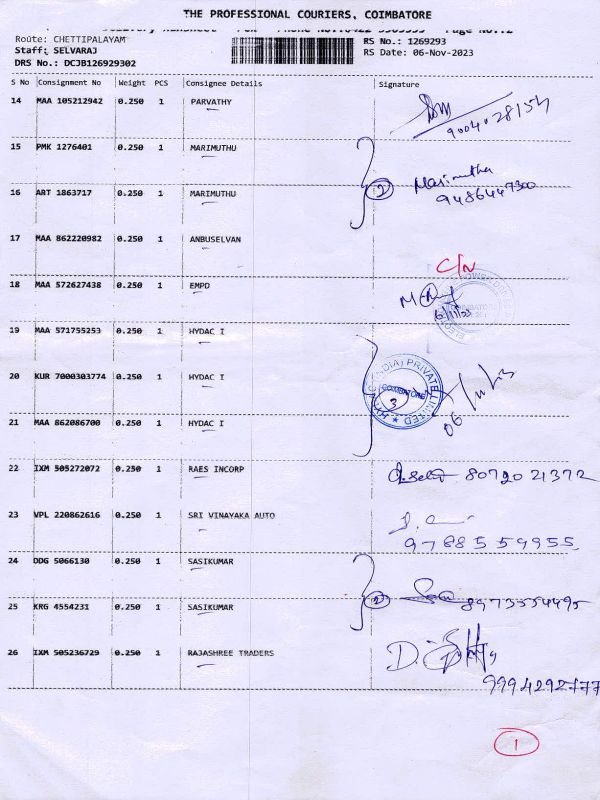 THE PROFESSIONAL COURIERS, COIMBATORE
Route: CHETTIPALAYAM
Staff: SELVARAJ
DRS No.: DCJB126929302
RS No.: 1269293
RS Date: 06-Nov-2023
S No Consignment No Weight PCS Consignee Details Signature
14 MAA 105212942 0.250 1 PARVATHY
9004028154
15 PMK 1276401 0.250 1 MARIMUTHU
2 Marimuthu
9486447300
16 ART 1863717 0.250 1 MARIMUTHU
17 MAA 862220982 0.250 1 ANBUSELVAN
C/N
18 MAA 572627438 0.250 1 EMPD
6/11/23
19 MAA 571755253 0.250 1 HYDAC I
20 KUR 7000303774 0.250 1 HYDAC I
(INDIA) PRIVATE LIMITED
COIMBATORE
3
21 MAA 862086700 0.250 1 HYDAC I
22 IXM 505272072 0.250 1 RAES INCORP
8072021372
23 VPL 220862616 0.250 1 SRI VINAYAKA AUTO
9788559955
24 DDG 5066130 0.250 1 SASIKUMAR
2 8973554495
25 KRG 4554231 0.250 1 SASIKUMAR
26 IXM 505236729 0.250 1 RAJASHREE TRADERS
9994292777
1